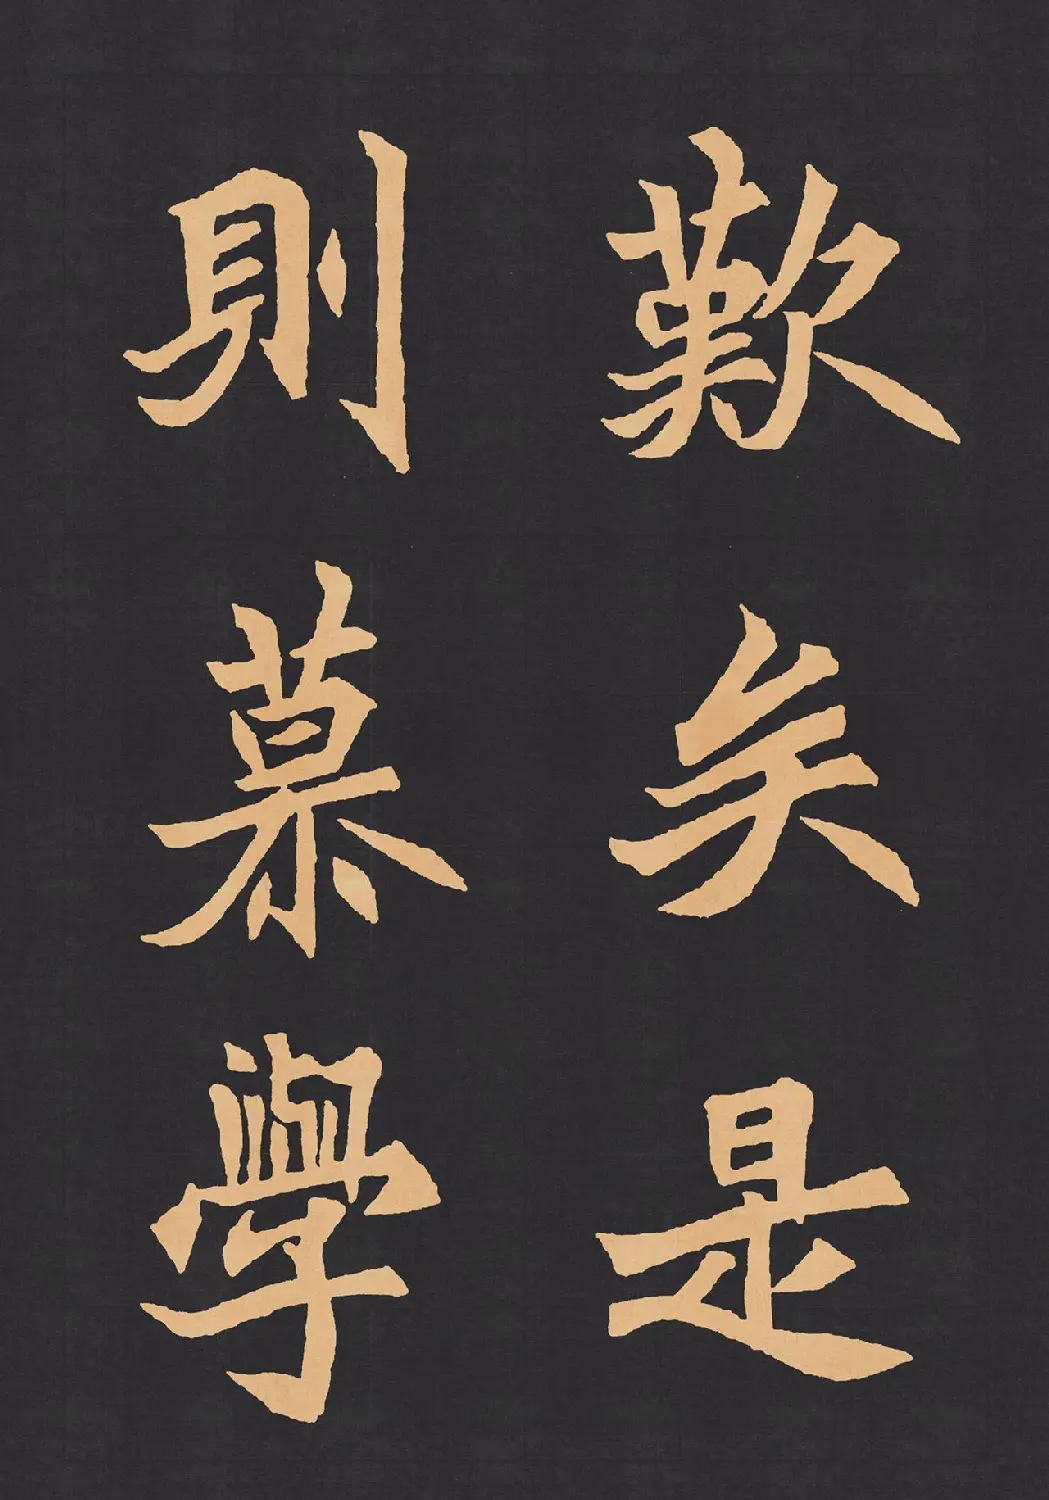 歎矣是
則慕學